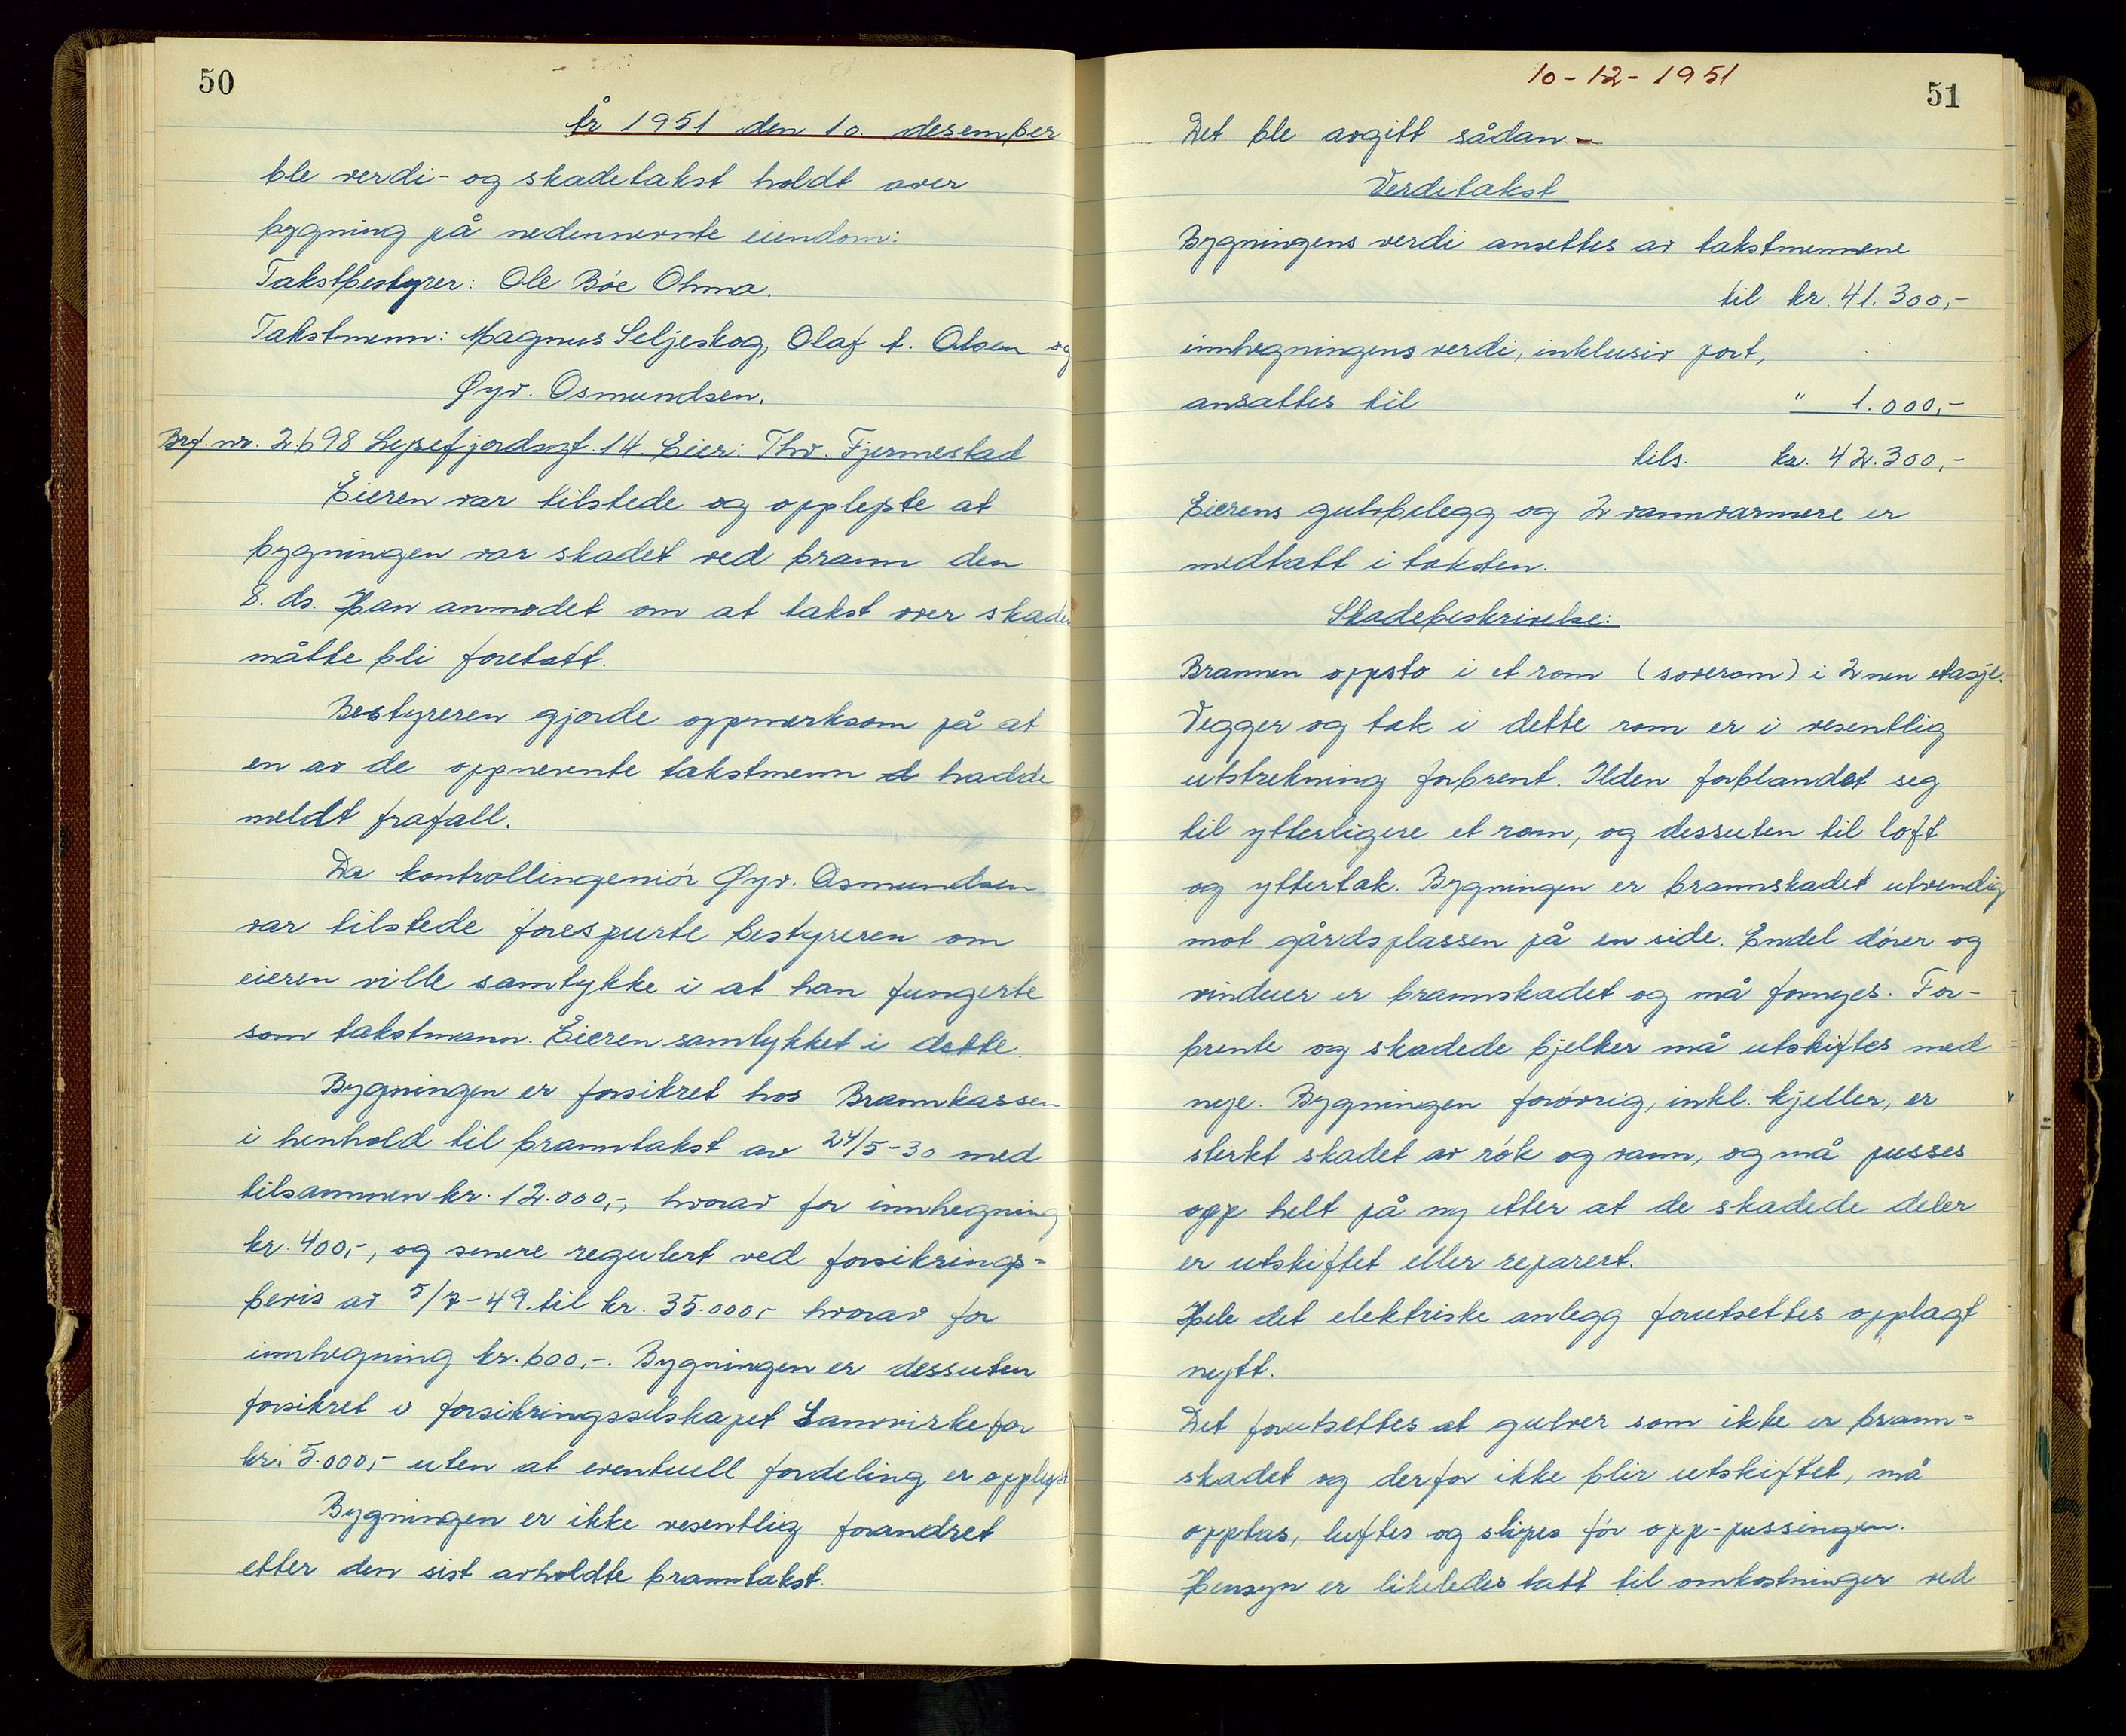 50
År 1951 den 10. desember
ble verdi- og skadetakst holdt over
bygning på nedennevnte eiendom:
Takstbestyrer: Ole Bóe Ohma.
Takstmenn: Magnus Seljeskog, Olaf A. Olsen og
Øyv. Osmundsen.
Brf. nr. 2698 Lysefjordsgt. 14. Eier: Thv. Fjermestad
Eieren var tilstede og opplyste at
bygningen var skadet ved brann den
8. ds. Han anmodet om at takst over skaden
måtte bli foretatt.
Bestyreren gjorde oppmerksom på at
en av de oppnevnte takstmenn hadde
meldt frafall.
Da kontrollingeniór Øyv. Osmundsen
var tilstede forespurte bestyreren om
eieren ville samtykke i at han fungerte
som takstmann. Eieren samtykket i dette.
Bygningen er forsikret hos Brannkassen
i henhold til branntakst av 24/5-30 med
tilsammen kr. 12.000,-, hvorav for innhegning
kr. 400,-, og senere regulert ved forsikrings=
bevis av 5/7-49 til kr. 35.000,- hvorav for
innhegning kr. 600,-. Bygningen er dessuten
forsikret i forsikringsselskapet Samvirke for
kr. 5.000,- uten at eventuell fordeling er opplyst
Bygningen er ikke vesentlig forandret
etter den sist avholdte branntakst.
10-12-1951
51
Det ble avgitt sådan -
Verditakst
Bygningens verdi ansettes av takstmennene
til kr. 41.300,-
innhegningens verdi, inklusiv port,
ansattes til " 1.000,-
tils. kr. 42.300,-
Eierens gulvbelegg og 2 vannvarmere er
medtatt i taksten.
Skadebeskrivelse:
Brannen oppsto i et rom (soverom) i 2nen etasje.
Vegger og tak i dette rom er i vesentlig
utstrekning forbrent. Ilden forplandet seg
til ytterligere et rom, og dessuten til loft
og yttertak. Bygningen er brannskadet utvendig
mot gårdsplassen på en side. Endel dórer og
vinduer er brannskadet og må fornyes. For-
brente og skadede bjelker må utskiftes med
nye. Bygningen forövrig, inkl. kjeller, er
sterkt skadet av rók og vann, og må pusses
opp helt på ny etter at de skadede deler
er utskiftet eller reparert.
Hele det elektriske anlegg forutsettes opplagt
nytt.
Det forutsettes at gulver som ikke er brann=
skadet og derfor ikke blir utskiftet, må
opptas, luftes og slipes fór opp-pussingen.
Hensyn er likeledes tatt til omkostninger ved